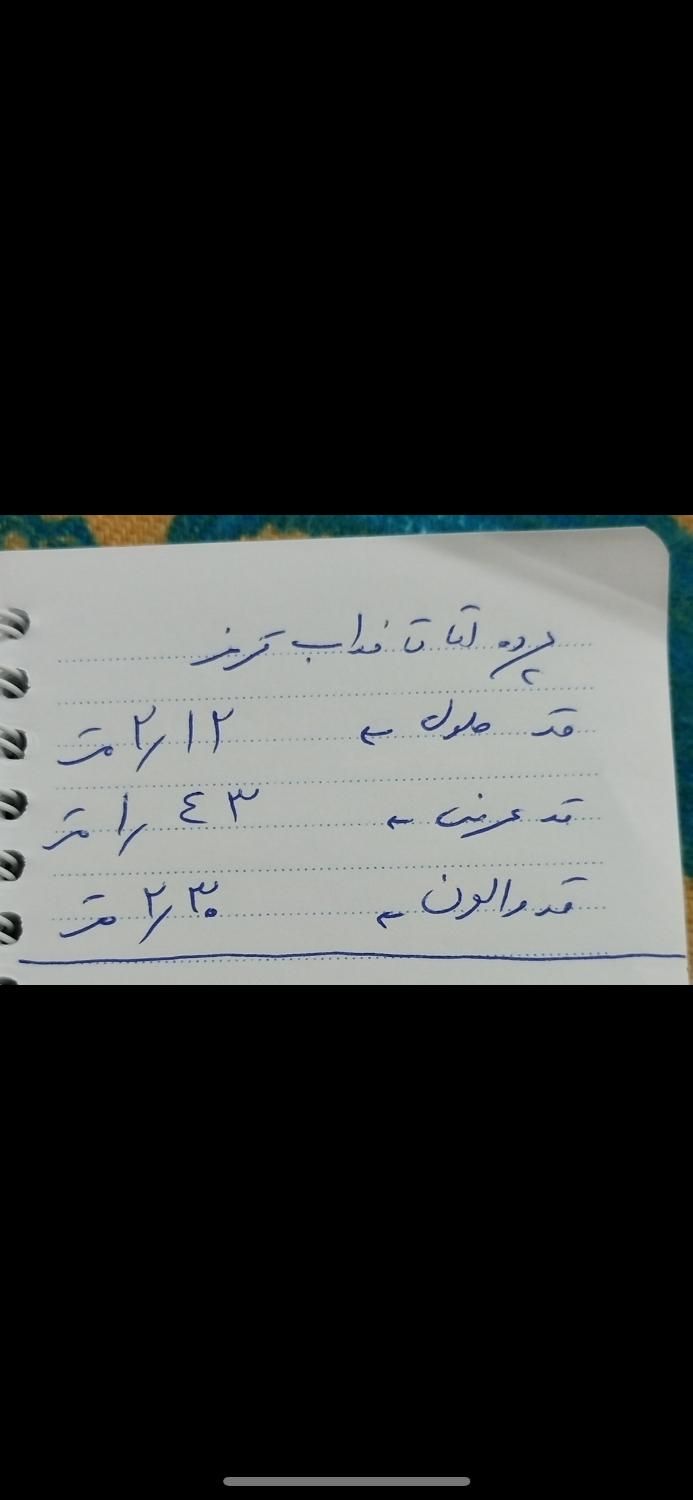 پرده اتا تا خداب قرمز
قد طول ← ۲٫۱۲ متر
قد عرض ← ۱٫٤۳ متر
قد والون ← ۲٫۳۰ متر